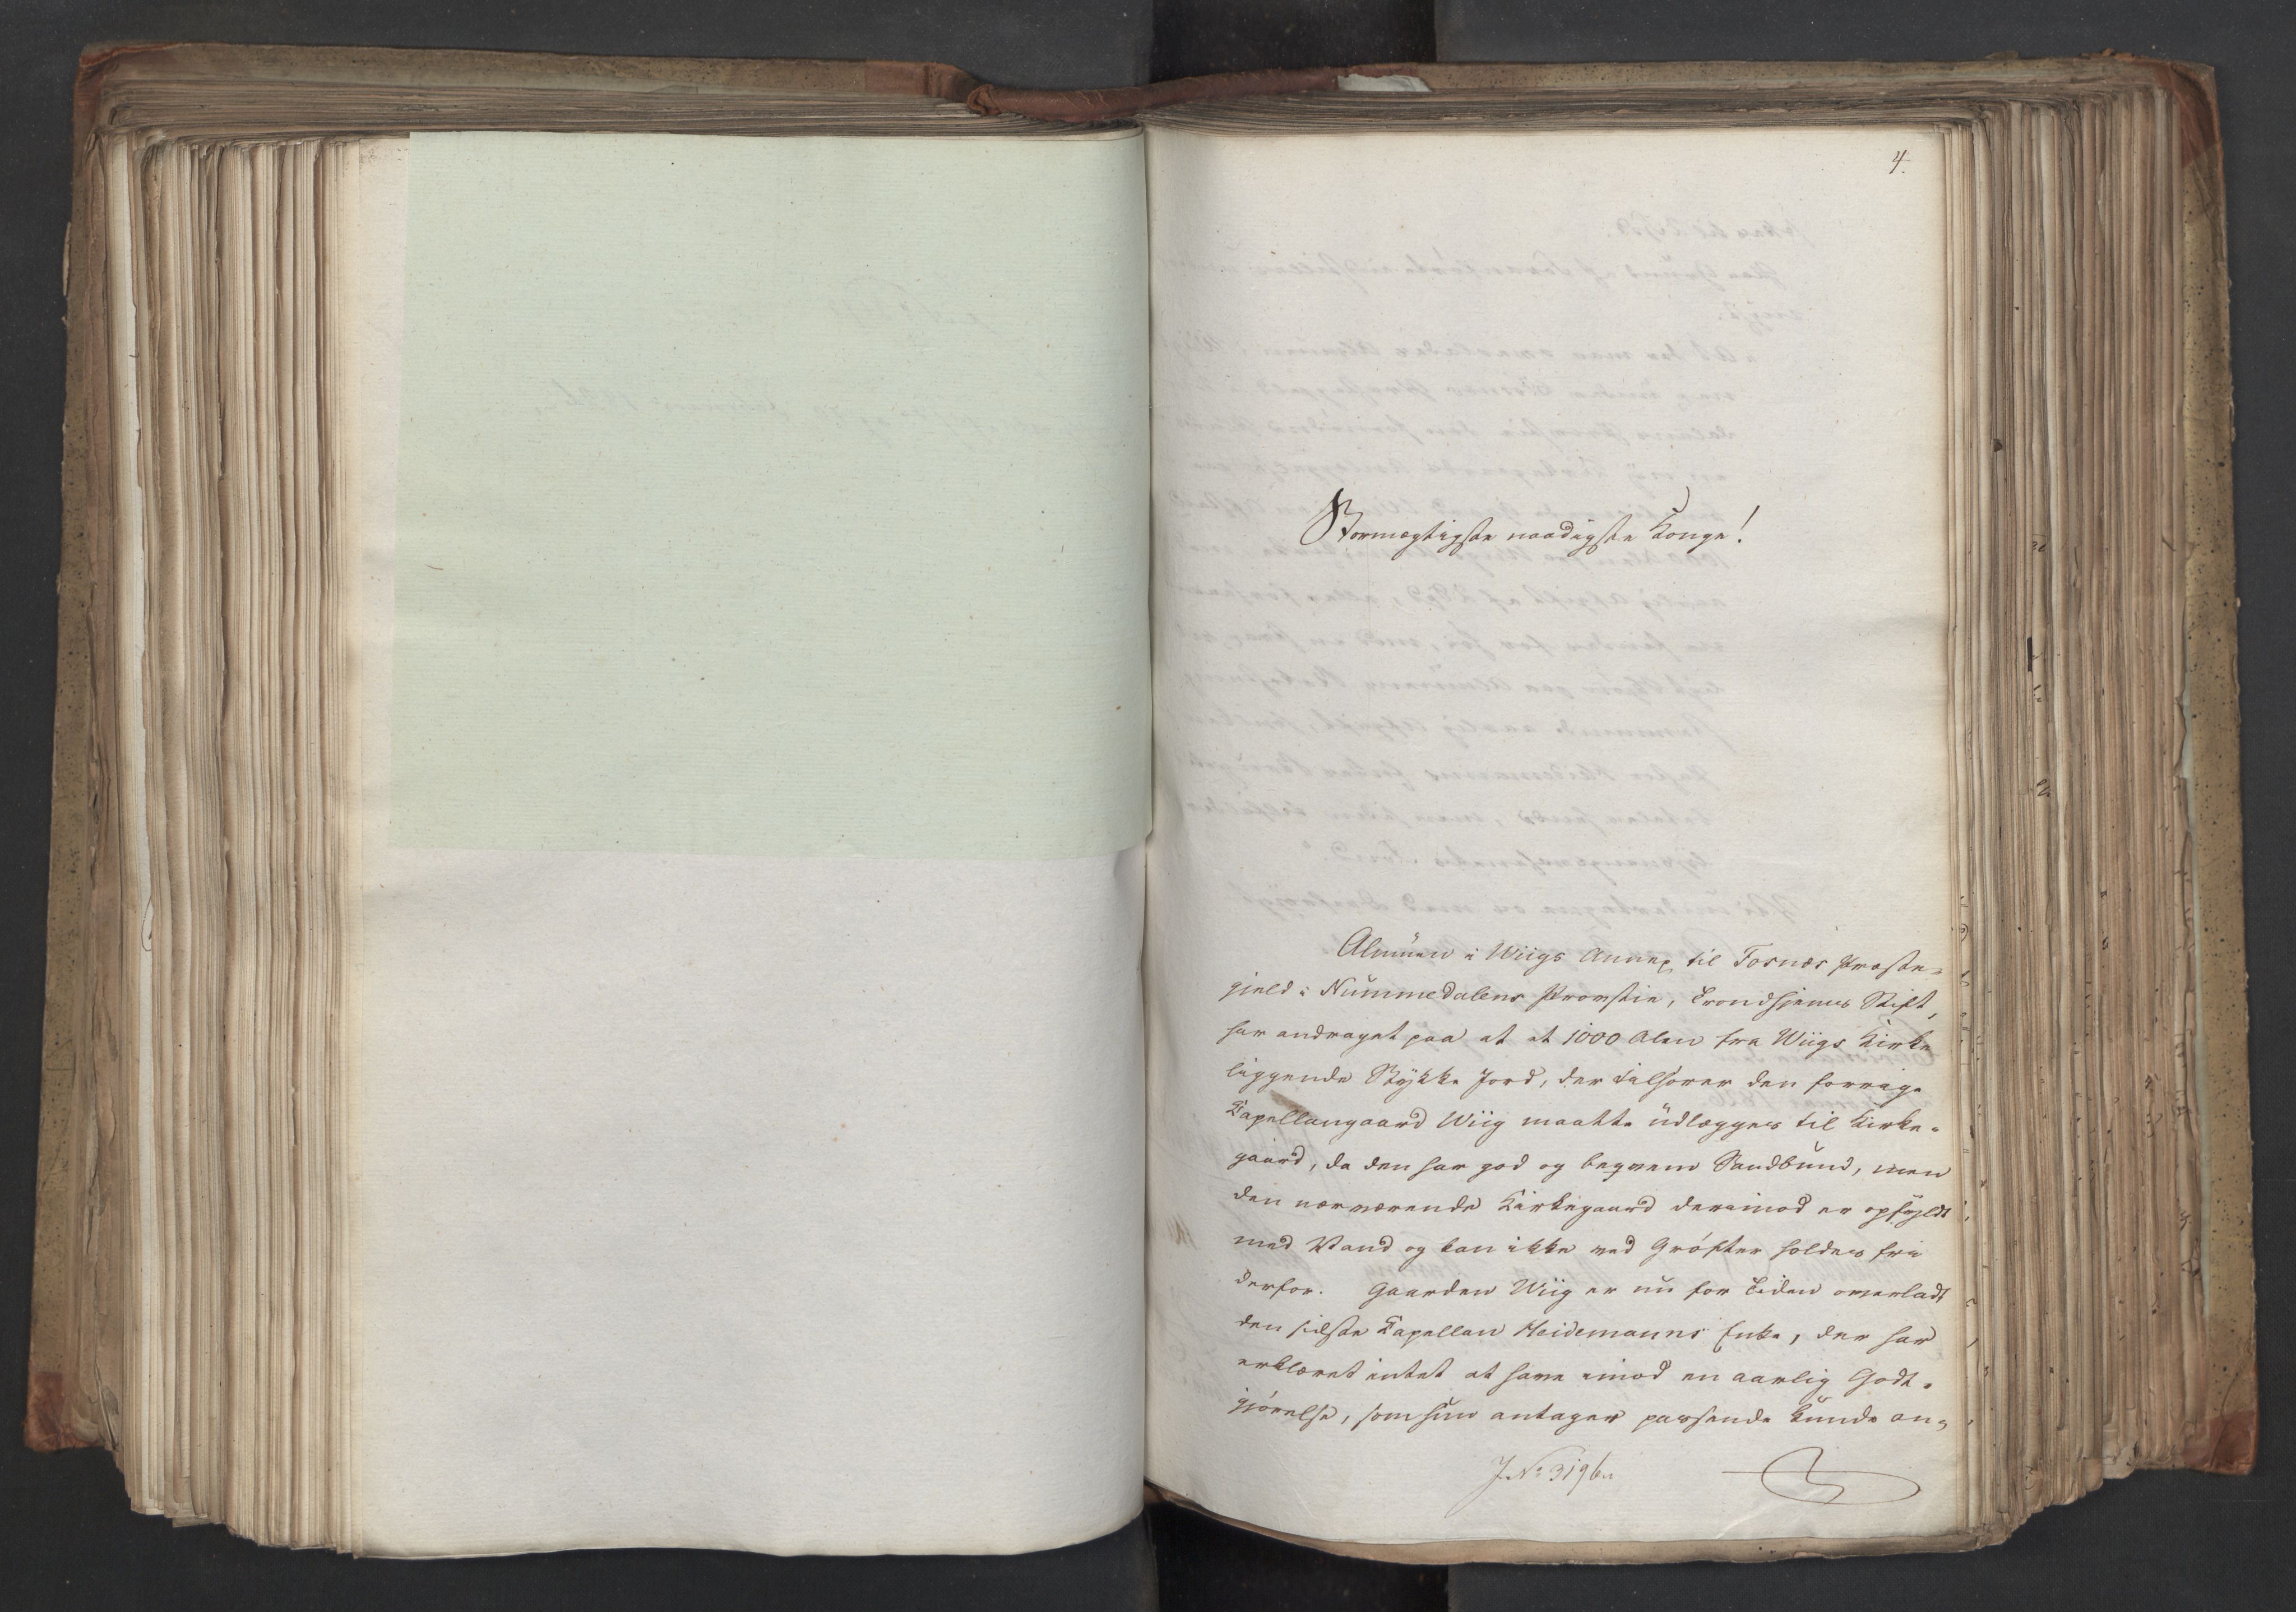 4.
Stormægtigste naadigste Konge!
Almuen i Wiigs Annex til Fosnæs Præste-
gield i Nummedalens Provstie, Trondhjems Stift,
har andraget paa at et 1000 Alen fra Wiigs Kirke
liggende Stykke Jord, der tilhører den forrige
Capellangaard Wiig maatte udlægges til Kirke-
gaard, da den har god og beqvem Sandbund, men
den nærværende Kirkegaard derimod er opfyldt
med Vand og kan ikke ved Grøfter holdes fri
derfor. Gaarden Wiig er nu for Tiden overladt
den sidste Capellan Heidemanns Enke, der har
erklæret intet at have imod en aarlig Godt-
gjørelse, som hun antager passende kunde an-
J. No 319/